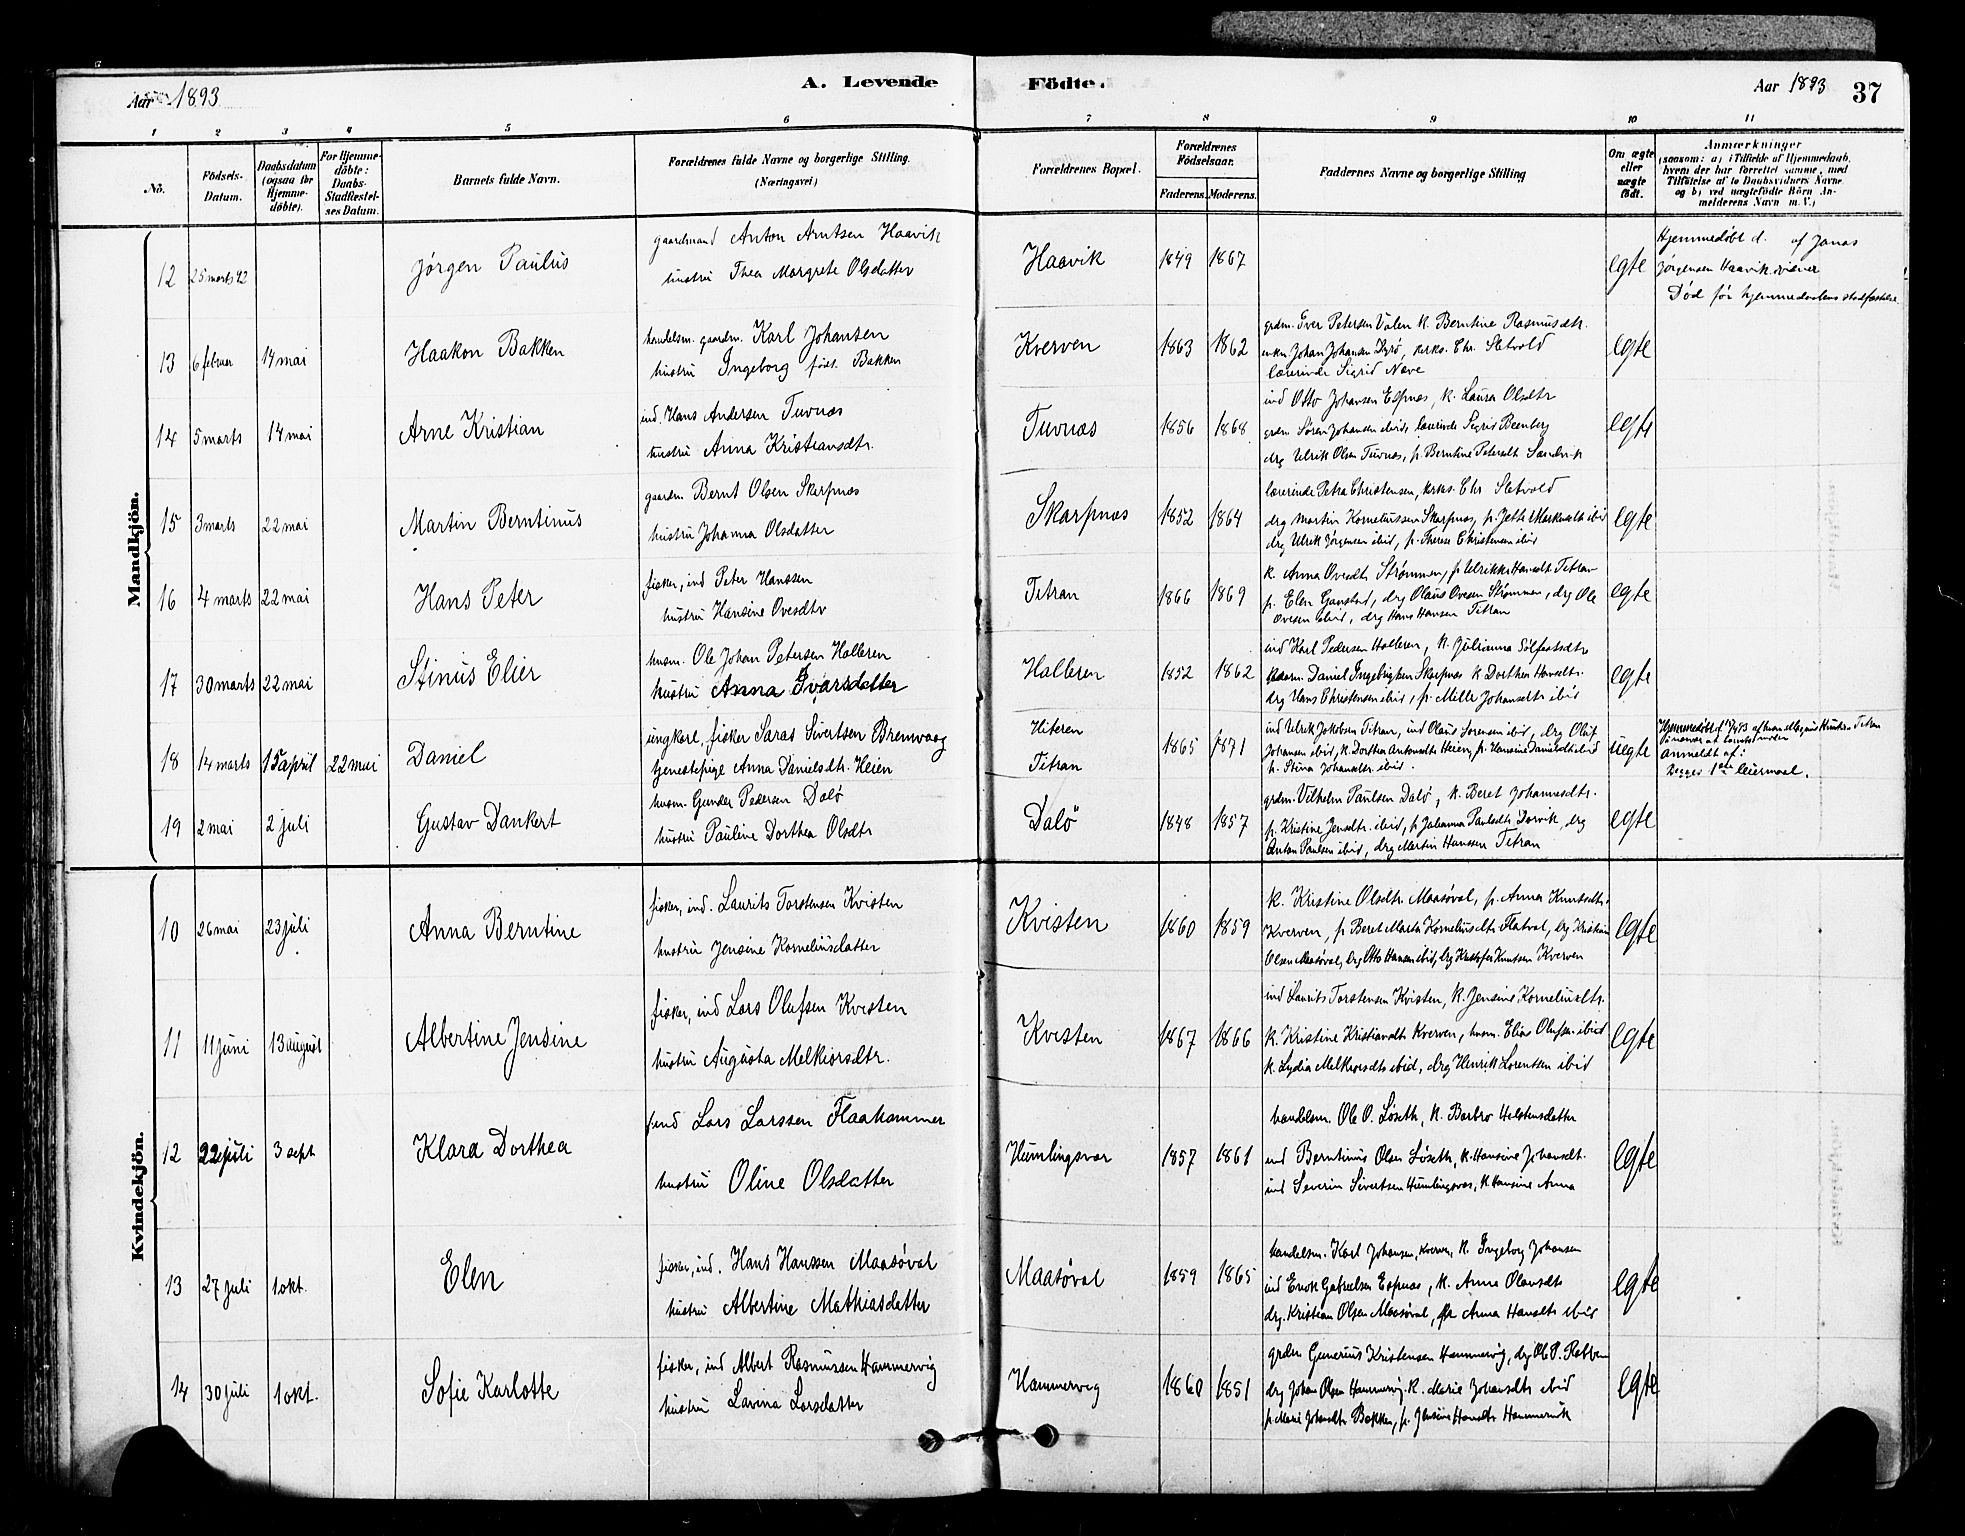 Aar 1893
A. Levende Födte.
Aar 1893 37
1 2 3 4 5 6 7 8 9 10 11
No.
Födsels-Datum.
Daabsdatum (ogsaa for Hjemme-döbte).
For Hjemme-döbte: Daabs-Stadfæstel-ses Datum.
Barnets fulde Navn.
Forældrenes fulde Navne og borgerlige Stilling.
(Næringsvei)
Forældrenes Bopæl.
Forældrenes Födselsaar.
Faderens. Moderens.
Faddernes Navne og borgerlige Stilling
Om ægte eller uægte födt.
Anmærkninger
(saasom: a) i Tilfælde af Hjemmedaab,
hvem der har forrettet samme, med
Tilföielse af to Daabsvidners Navne
og b) ved uægtefödte Börn An-
melderens Navn m. V.)
Mandkjön.
12 25 marts 92 Jørgen Paulus
gaardmand Anton Arntsen Haavik
hustru Thea Margrete Olsdatter
Haavik 1849 1867 egte
Hjemmedøbt d. af Jonas
Jørgensen Haavik
Død før hjemmedaabens stadfæstelse
13 6 februar 14 mai Haakon Bakken
handelsm. gaardm. Karl Johansen
hustru Ingeborg født Bakken
Kverven 1863 1862
grdm. Iver Petersen Valen k. Berntine Rasmusdtr.
enkm Johan Johansen Dyrø, kirks. Chr. Sletvold
lærerinde Sigrid Næve
egte
14 5 marts 14 mai Arne Kristian
ind. Hans Andersen Tuvnæs
hustru Anna Kristiansdtr.
Tuvnæs 1856 1868
ind Otto Johansen Espnæs, k. Laura Olsdtr
grdm Søren Johansen ibid, lærerinde Sigrid Beenberg
drg Ulrik Olsen Tuvnæs, p. Berntine Petersdtr Sandvik
egte
15 3 marts 22 mai Martin Berntinus
gaardm. Bernt Olsen Skarpnæs
hustru Johanna Olsdatter
Skarpnæs 1852 1864
lærerinde Petra Christensen, kirks. Chr Sletvold
drg Martin Korneliussen Skarpnæs, p. Jette ibid
drg Ulrik Jørgensen ibid, p. Therese Christensen ibid
egte
16 4 marts 22 mai Hans Peter
fisker, ind Peter Hanssen
hustru Hansine Ovesdtr
Titran 1866 1869
k. Anna Ovesdtr Strømmen, p. Ulrikke Hansdtr Titran
p. Elen Ganstad, drg Olaus Ovesen Strømmen, drg Ole
Ovesen ibid, drg Hans Hansen Titran
egte
17 30 marts 22 mai Stinus Elier
husm. Ole Johan Petersen Halleren
hustru Anna Ivarsdatter
Halleren 1852 1862
ind Karl Pedersen Halleren, k. Julianna Sølfastsdtr
Daniel Ingebrigtsen Skarpnæs k Dorthea Hansdtr.
drg Hans Christensen ibid, p. Mille Johansdtr ibid
egte
18 14 marts 15 april 22 mai Daniel
ungkarl, fisker Saras Sivertsen Bremvaag
tjenestepige Anna Danielsdtr. Heien
Hiteren
Titran
1865 1871
ind Ulrik Jakobsen Titran, ind Olaus Sørensen ibid, drg Oluf
Johansen ibid, k. Dorthea Antonsdtr Heien, p. Hansine Danielsdtr ibid
p. Stina Johansdtr ibid.
uegte
anmeldt af:
Begges 1ste leiermaal.
19 2 mai 2 juli Gustav Dankert
husm. Gunder Pedersen Dalø
hustru Pauline Dorthea Olsdtr
Dalø 1848 1857
grdm. Vilhelm Paulsen Dalø, k. Beret Johannesdtr.
p. Kristine Jensdtr. ibid, p Johanna Paulsdtr Dorvik, drg
Anton Paulsen ibid, drg Martin Hanssen Titran
egte
Kvindekjön.
10 26 mai 23 juli Anna Berntine
fisker, ind. Laurits Torstensen Kvisten
hustru Jensine Korneliusdatter
Kvisten 1860 1859
k. Kristine Olsdtr. Maasøval, p. Anna Knutsdtr.
Kverven, p Beret Marta Korneliusdtr Flatval, drg Kristian
Olsen Maasøval, drg Otto Hansen ibid, drg Kristofer Knutsen Kverven
egte
11 11 juni 13 august Albertine Jensine
fisker, ind Lars Olufsen Kvisten
hustru Augusta Melkiorsdtr.
Kvisten 1867 1866
ind Laurits Torstensen Kvisten, k. Jensine Korneliusdtr.
k. Kristine Kristiansdtr Kverven, husm. Elias Olufsen ibid
k. Lydia Melkiorsdtr ibid, drg Henrik Lorentsen ibid
egte
12 22 juli 3 sept Klara Dorthea
ind Lars Larssen Flaahammer
hustru Oline Olsdatter
Humlingsvær 1857 1861
handelsm. Ole O. Løseth, k. Barbro Helstensdatter
ind Berntinus Olsen Løseth, k. Hansine Johansdt.
ind Severin Sivertsen Humlingsvær, k. Hansine Anna
egte
13 27 juli 1 okt. Elen
fisker, ind. Hans Hanssen Maasøval
hustru Albertine Mathiasdatter
Maasøval 1859 1865
handelsm. Karl Johansen, Kverven, k. Ingeborg Johansen
ind Erick Gabrielsen Espnæs, k. Anna Olausdtr
drg. Kristian Olsen Maasøval, p. Anna Hansdtr ibid
egte
14 30 juli 1 okt. Sofie Karlotte
fisker, ind Albert Rasmussen Hammervig
hustru Lavina Larsdatter
Hammervig 1860 1851
grdm Gunerius Kristensen Hammervig, drg Ole P.
drg Johan Olsen Hammervig, k. Marie Johansdtr ibid
p Marie Johansdtr Bakken, p. Jensine Hansdtr Hammervik
egte